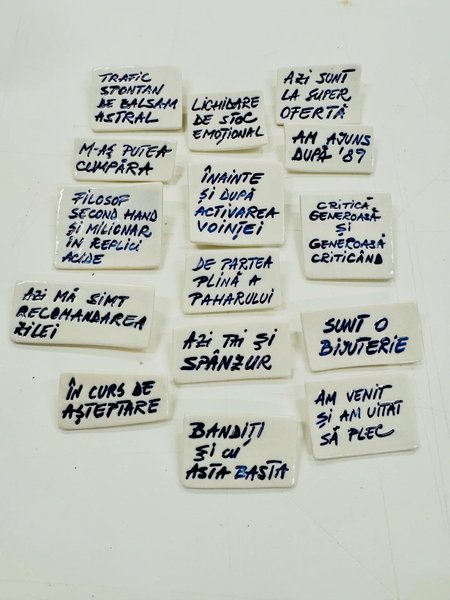 TRAFIC
SPONTAN
DE BALSAM
ASTRAL
LICHIDARE
DE STOC
EMOȚIONAL
AZI SUNT
LA SUPER
OFERTĂ
M-AȘ PUTEA
CUMPĂRA
ÎNAINTE
ȘI DUPĂ
ACTIVAREA
VOINȚEI
AM AJUNS
DUPĂ '89
FILOSOF
SECOND HAND
ȘI MILIONAR
ÎN REPLICI
ACIDE
CRITICĂ
GENEROASĂ
ȘI
GENEROASĂ
CRITICÂND
DE PARTEA
PLINĂ A
PAHARULUI
AZI MĂ SIMT
RECOMANDAREA
ZILEI
AZI TAI ȘI
SPÂNZUR
SUNT O
BIJUTERIE
ÎN CURS DE
AȘTEPTARE
BANDIȚI
ȘI CU
ASTA BASTA
AM VENIT
ȘI AM UITAT
SĂ PLEC